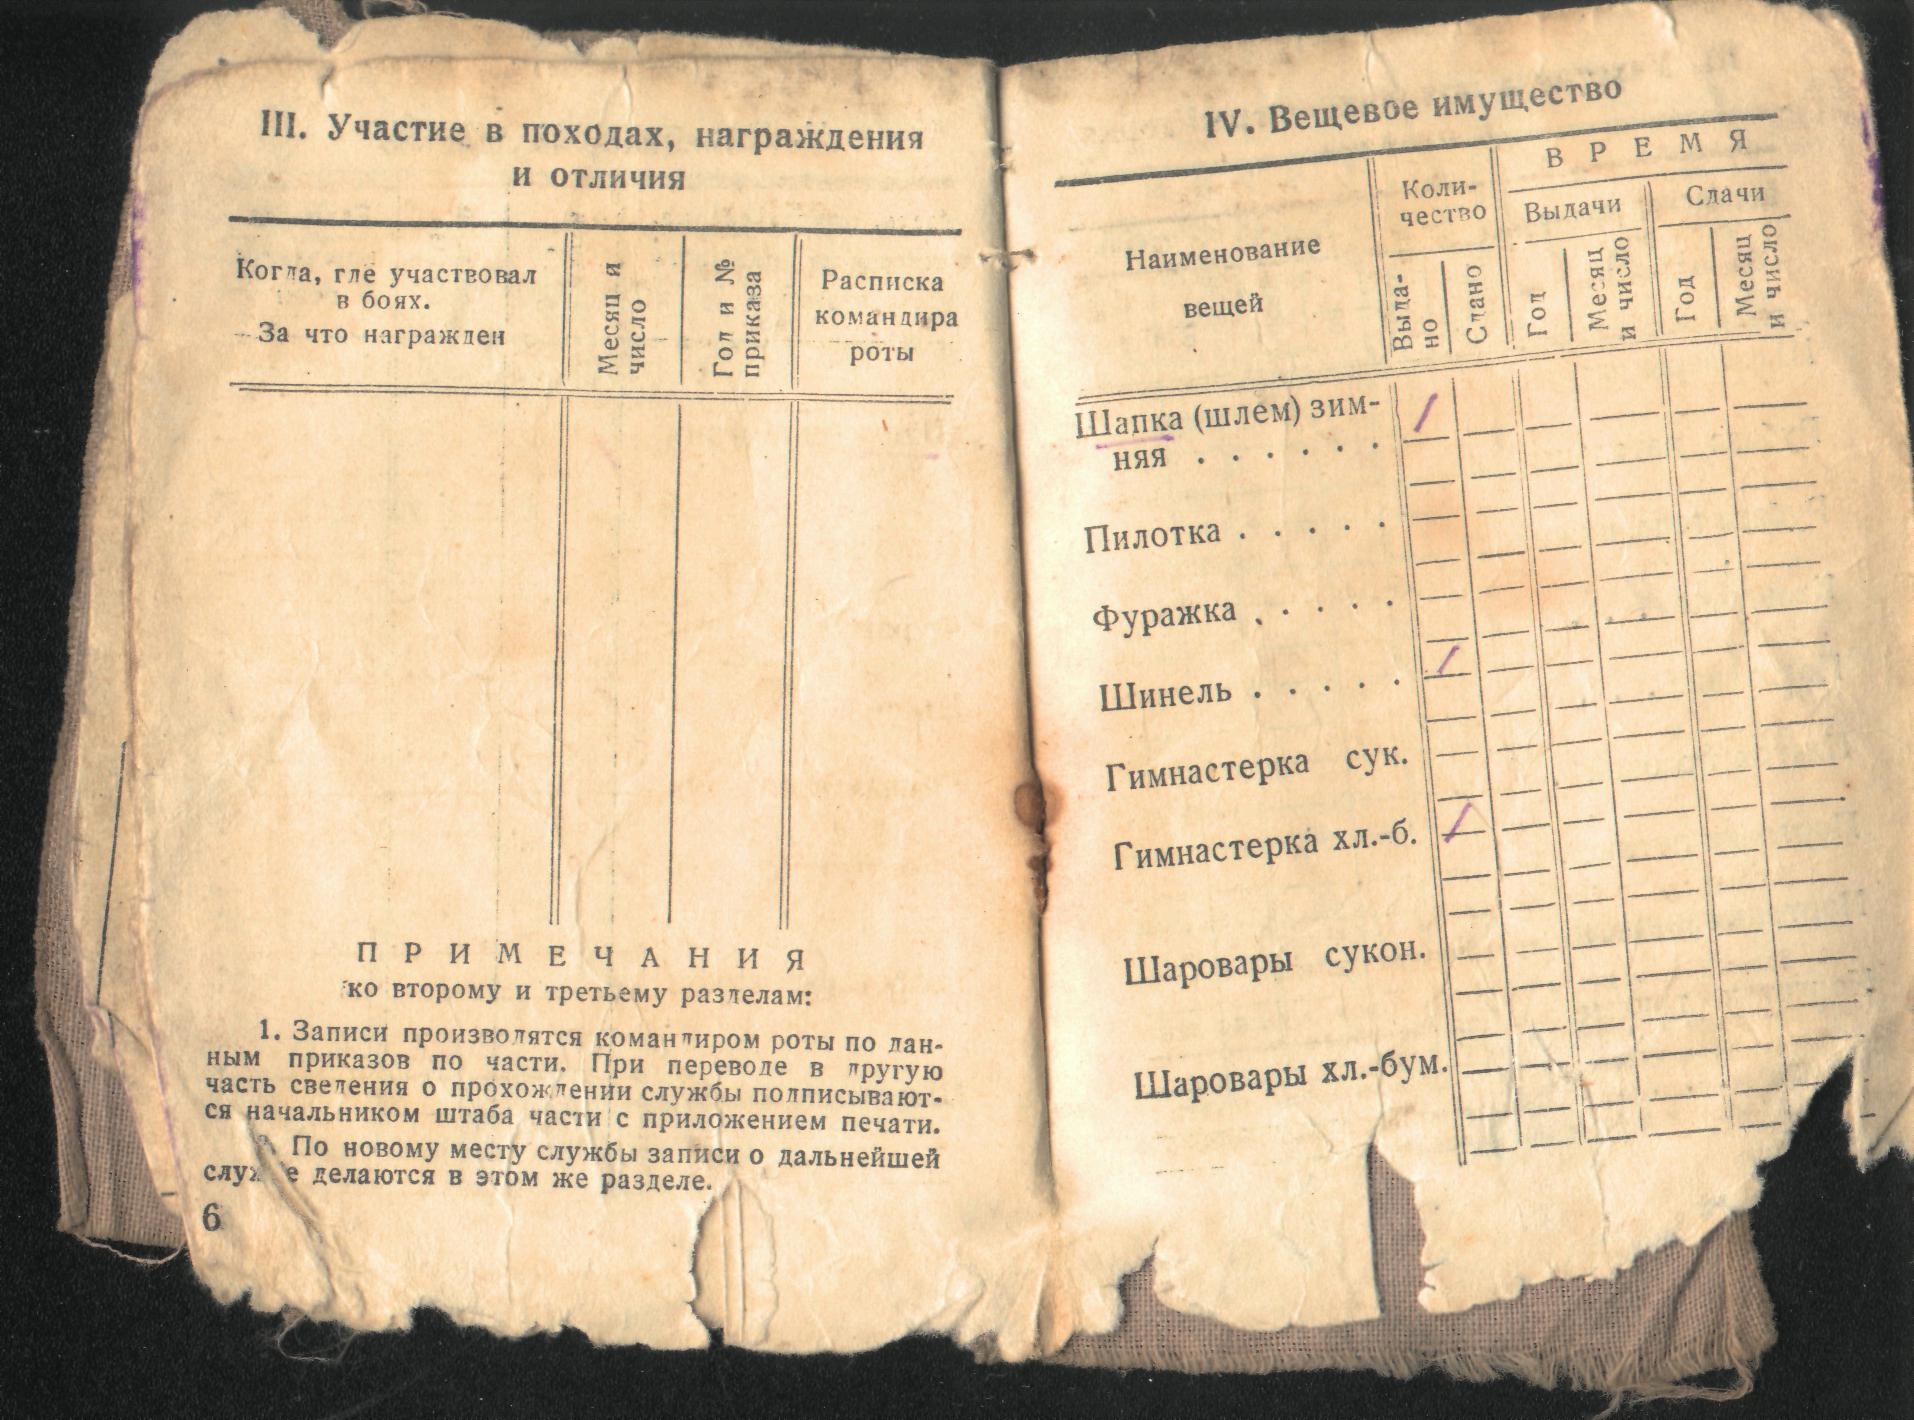 III. Участие в походах, награждения
и отличия
Когда, где участвовал
в боях.
За что награжден
Месяц и
число
Год и №
приказа
Расписка
командира
роты
ПРИМЕЧАНИЯ
ко второму и третьему разделам:
1. Записи производятся командиром роты по дан-
ным приказов по части. При переводе в другую
часть сведения о прохождении службы подписывают-
ся начальником штаба части с приложением печати.
По новому месту службы записи о дальнейшей
делаются в этом же разделе.
6
IV. Вещевое имущество
Наименование
вещей
Коли-
чество
ВРЕМЯ
Выдачи
Сдачи
Выда-
но
Сдано
Год
Месяц
и число
Год
Месяц
и число
Шапка (шлем) зим- /
няя . . . . . .
Пилотка . . . . .
Фуражка . . . . .
Шинель . . . . . /
Гимнастерка сук.
Гимнастерка хл.-б. /
Шаровары сукон.
Шаровары хл.-бум.